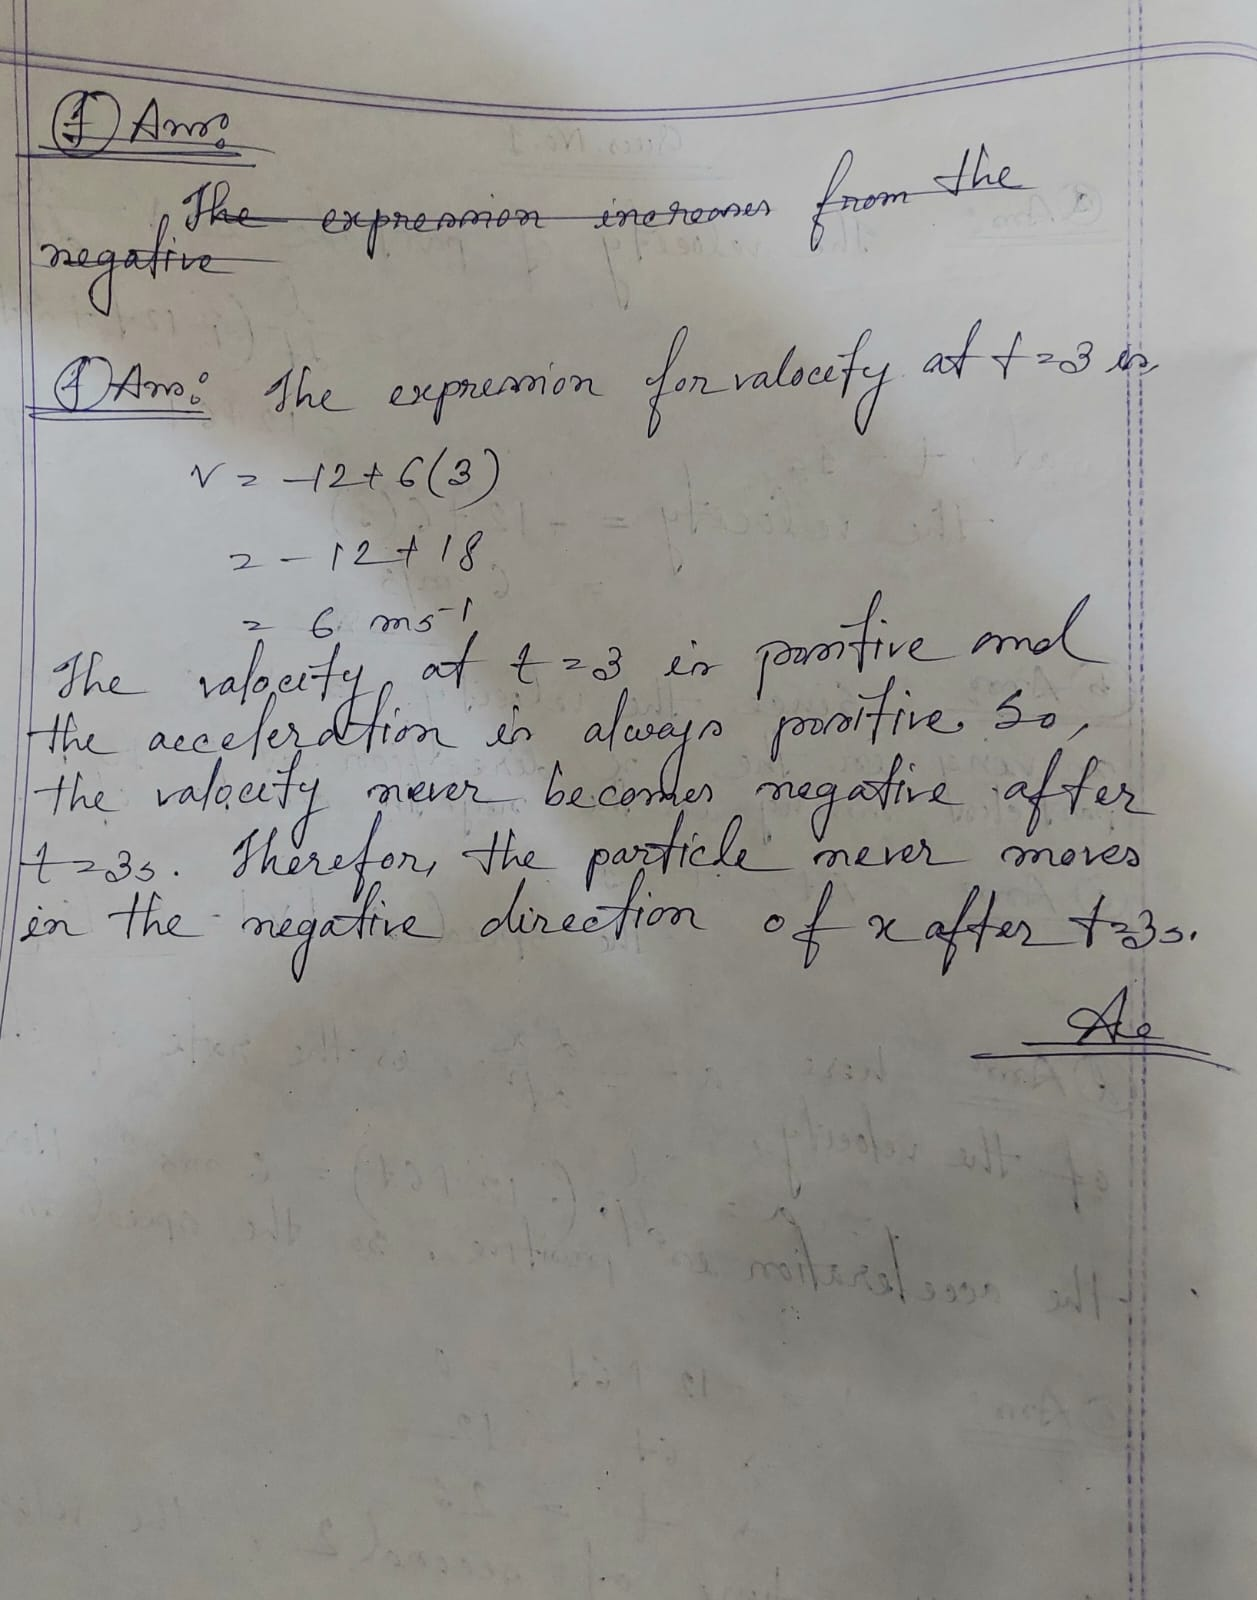 (f) Ans:
The expression increases from the
negative
(f) Ans: The expression for valocity at t=3 is,
v = -12+6(3)
= -12+18
= 6 ms⁻¹
The valocity at t=3 is positive and
the acceleration is always positive. So,
the valocity never becomes negative after
t=3s. Therefor, the particle never moves
in the negative direction of x after t=3s.